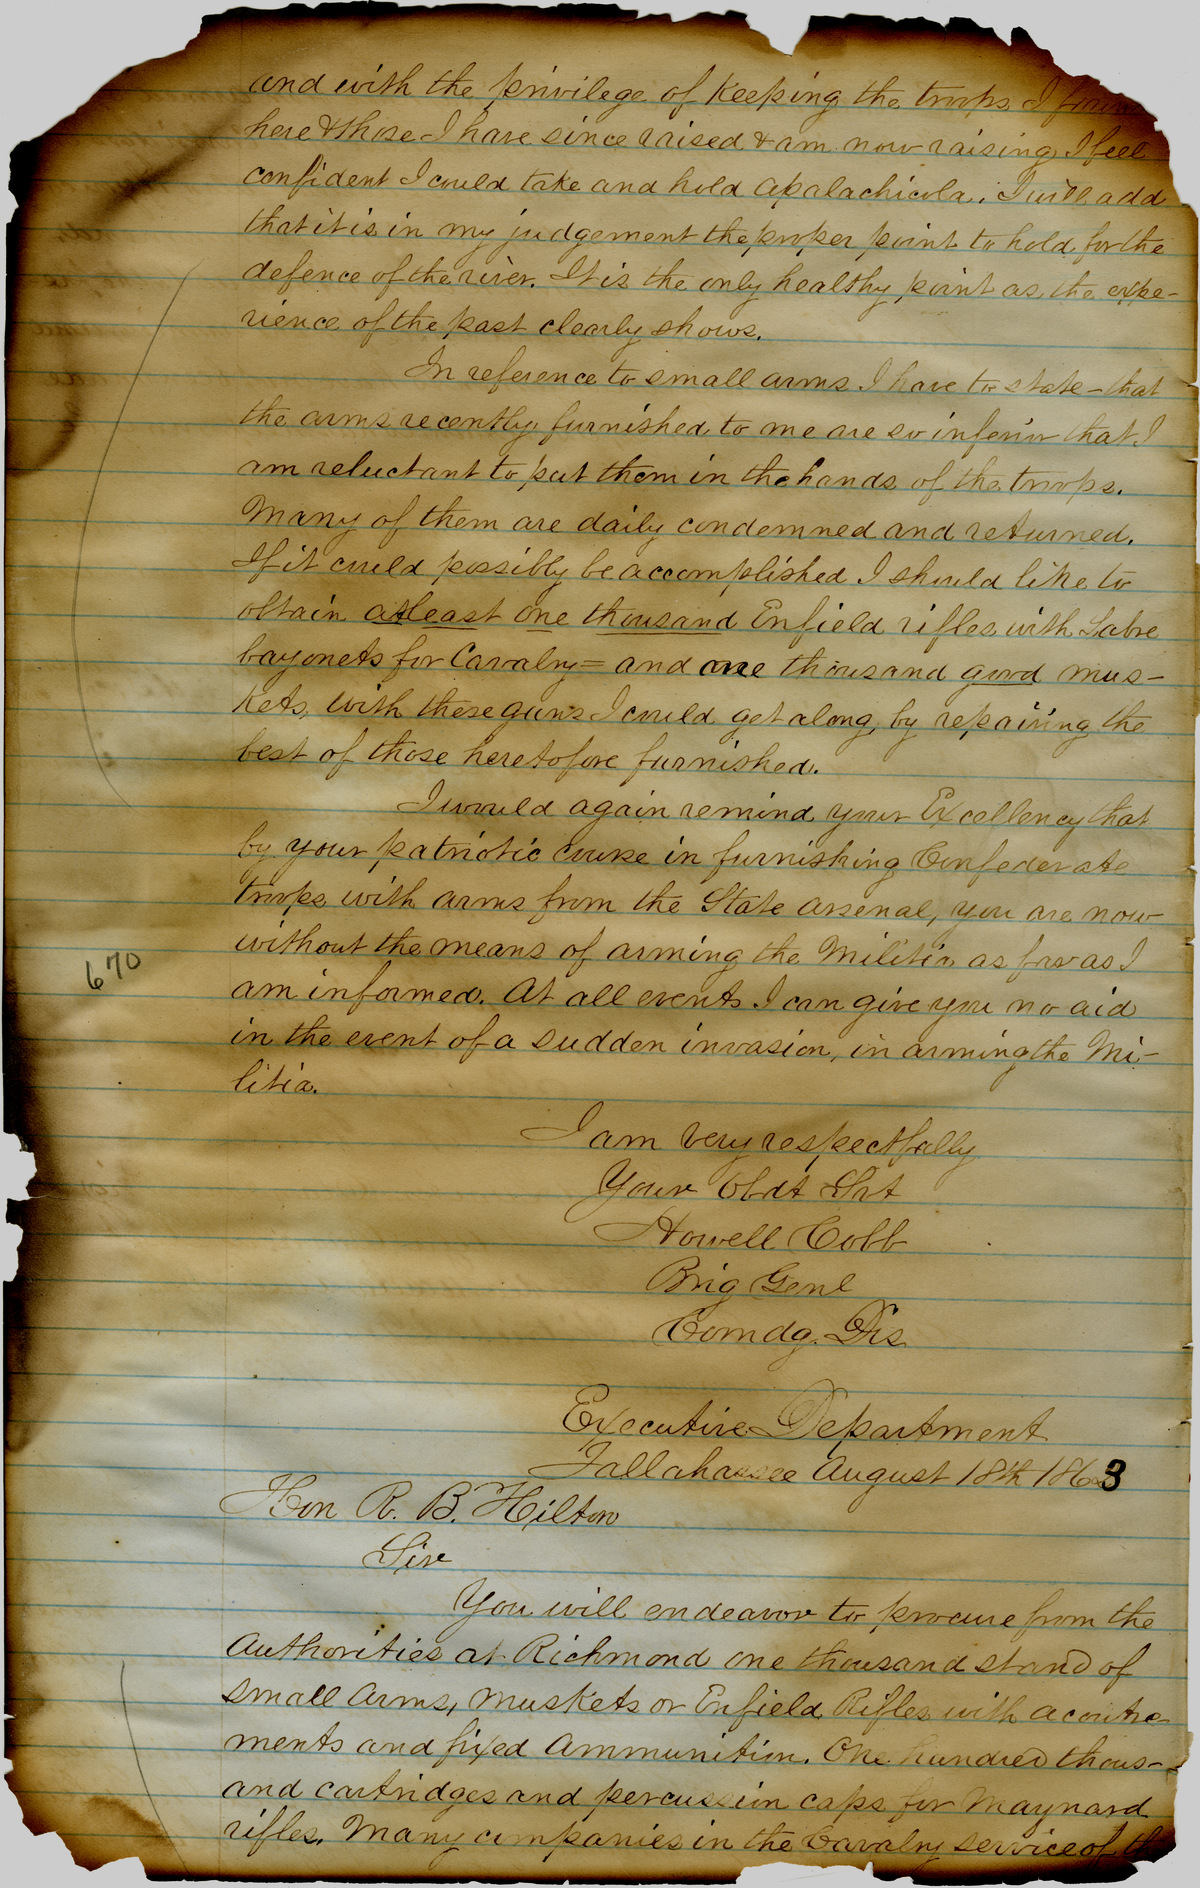 and with the privilege of keeping the troops I
here & those I have since raised & am now raising, I feel
confident I could take and hold Apalachicola. I will add
that it is in my judgement the proper point to hold for the
defence of the river. It is the only healthy point as the expe-
rience of the past clearly shows.
In reference to small arms I have to state - that
the arms recently furnished to me are so inferior that I
am reluctant to put them in the hands of the troops.
Many of them are daily condemned and returned.
If it could possibly be accomplished I should like to
obtain at least one thousand Enfield rifles with Sabre
bayonets for Cavalry = and one thousand good mus-
kets, with these guns I could get along, by repairing the
best of those heretofore furnished.
I would again remind your Excellency that
by your patriotic course in furnishing Confederate
troops with arms from the State arsenal, you are now
without the means of arming the Militia as far as I
am informed. At all events I can give you no aid
in the event of a sudden invasion, in arming the Mi-
litia.
670
I am very respectfully
Your Obdt Svt
Howell Cobb
Brig Genl
Comdg. Dis
Executive Department
Tallahassee August 18th 1863
Hon R. B. Hilton
Sir
You will endeavor to procure from the
Authorities at Richmond one thousand stand of
small Arms, Muskets or Enfield Rifles with acoutre-
ments and fixed Ammunition. One hundred thous-
and cartridges and percussion caps for Maynard
rifles. Many companies in the Cavalry service of